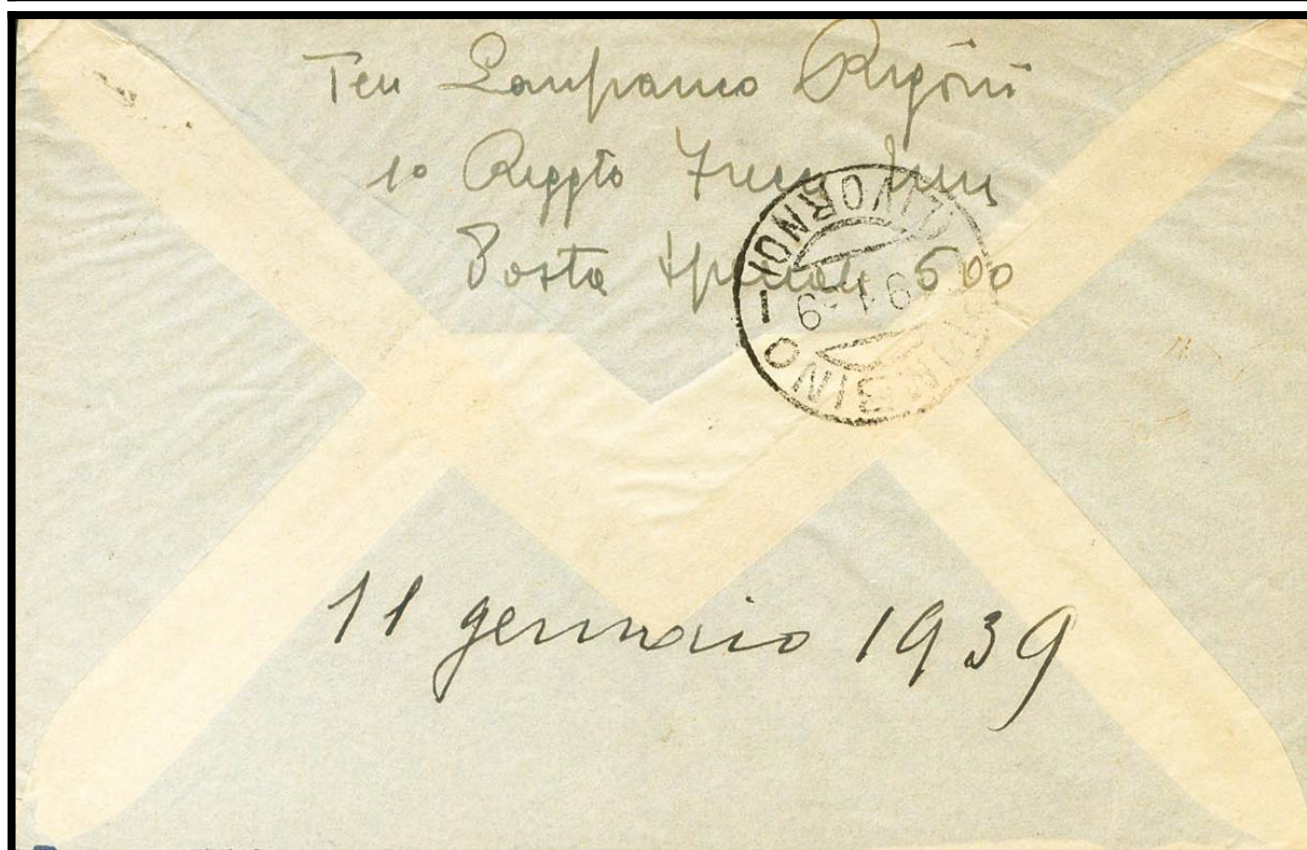 Ten Lanfranco Rigoni
1° Reggto Frecce
Posta Speciale 500
(LIVORNO)
11 gennaio 1939